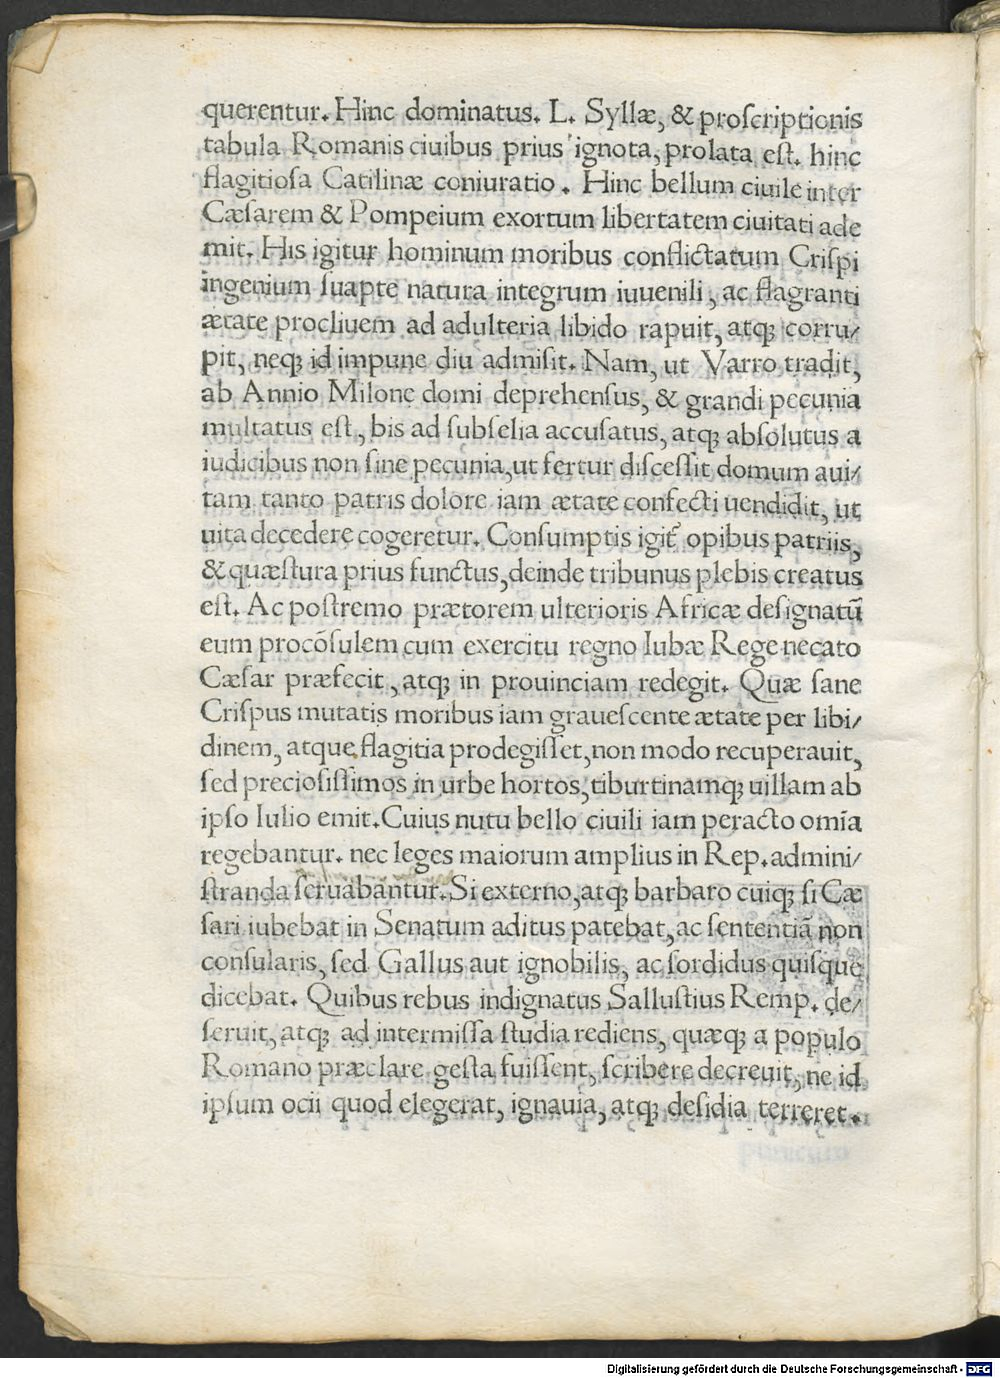 querentur. Hinc dominatus. L. Syllæ, & proſcriptionis
tabula Romanis ciuibus prius ignota, prolata eſt. hinc
flagitioſa Catilinæ coniuratio. Hinc bellum ciuile inter
Cæſarem & Pompeium exortum libertatem ciuitati ade
mit. His igitur hominum moribus conflictatum Criſpi
ingenium ſuapte natura integrum iuuenili, ac flagranti
ætate procliuem ad adulteria libido rapuit, atqꝫ corru/
pit, neqꝫ id impune diu admiſit. Nam, ut Varro tradit,
ab Annio Milone domi deprehenſus, & grandi pecunia
multatus eſt, bis ad ſubſelia accuſatus, atqꝫ abſolutus a
iudicibus non ſine pecunia, ut fertur diſceſſit domum aui/
tam tanto patris dolore iam ætate confecti uendidit, ut
uita decedere cogeretur. Conſumptis igit᷑ opibus patriis,
& quæſtura prius functus, deinde tribunus plebis creatus
eſt. Ac poſtremo prætorem ulterioris Africæ deſignatū
eum procōſulem cum exercitu regno Iubæ Rege necato
Cæſar præfecit, atqꝫ in prouinciam redegit. Quæ ſane
Criſpus mutatis moribus iam graueſcente ætate per libi/
dinem, atque flagitia prodegiſſet, non modo recuperauit,
ſed precioſiſſimos in urbe hortos, tiburtinamqꝫ uillam ab
ipſo Iulio emit. Cuius nutu bello ciuili iam peracto omīa
regebantur. nec leges maiorum amplius in Rep. admini/
ſtranda ſeruabantur. Si externo, atqꝫ barbaro cuiqꝫ ſi Cæ
ſari iubebat in Senatum aditus patebat, ac ſententiā non
conſularis, ſed Gallus aut ignobilis, ac ſordidus quiſque
dicebat. Quibus rebus indignatus Salluſtius Remp. de/
ſeruit, atqꝫ ad intermiſſa ſtudia rediens, quæqꝫ a populo
Romano præclare geſta fuiſſent, ſcribere decreuit, ne id
ipſum ocii quod elegerat, ignauia, atqꝫ deſidia terreret.
Digitalisierung gefördert durch die Deutsche Forschungsgemeinschaft - DFG